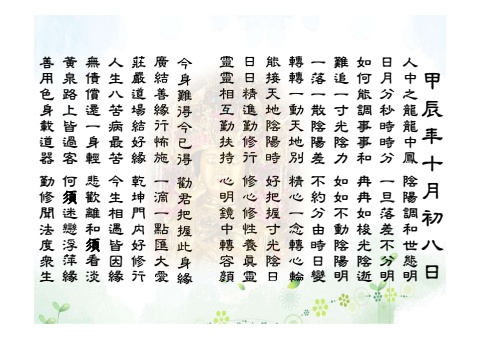 甲辰年十月初八日
人中之龍龍中鳳 陰陽調和世態明
日月分秒時時分 一旦落差不分明
如何能調事事和 冉冉如梭光陰逝
難追一寸光陰力 如如不動陰陽明
一落一散陰陽差 不約分由時日變
轉轉一動天地別 精心一念轉心輪
能接天地陰陽時 好把握寸光陰日
日日精進勤修行 修心修性養眞靈
靈靈相互勤扶持 心明鏡中轉容顏
今身難得今已得 勸君把握此身緣
廣結善緣行佈施 一滴一點匯大愛
莊嚴道場結好緣 乾坤門內好修行
人生八苦病最苦 今生相遇皆因緣
無債償還一身輕 悲歡離和須看淡
黃泉路上皆過客 何須迷戀浮萍緣
善用色身載道器 勤修聞法度眾生